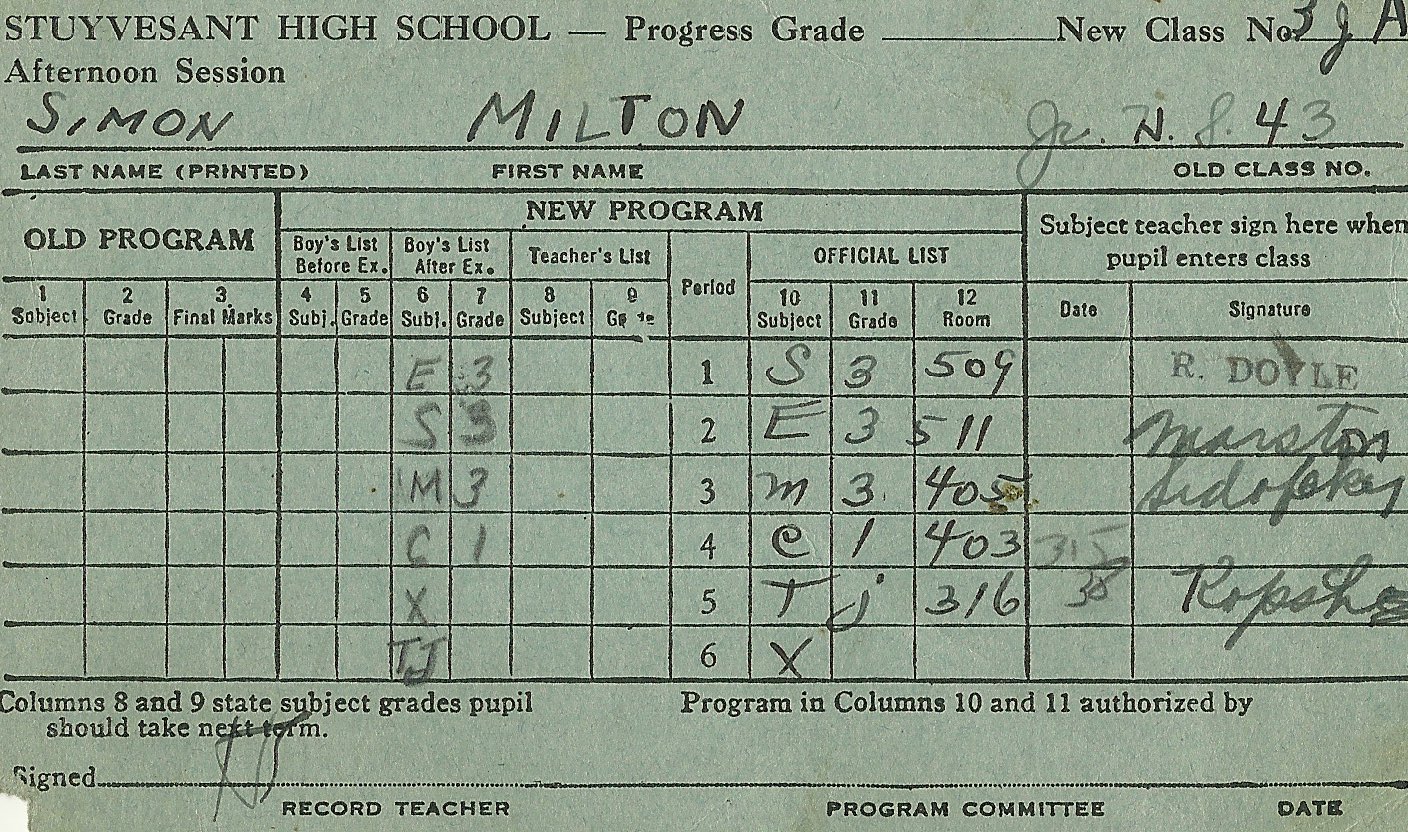 STUYVESANT HIGH SCHOOL — Progress Grade ________ New Class No. 3 g A
Afternoon Session
SIMON MILTON Jr. H. S. 43
LAST NAME (PRINTED) FIRST NAME OLD CLASS NO.
OLD PROGRAM NEW PROGRAM Subject teacher sign here when pupil enters class
Boy's List Before Ex. Boy's List After Ex. Teacher's List Period OFFICIAL LIST
1 Subject 2 Grade 3 Final Marks 4 Subj. 5 Grade 6 Subj. 7 Grade 8 Subject 9 10 Subject 11 Grade 12 Room Date Signature
E 3 1 S 3 509 R. DOYLE
S 3 2 E 3 511 Marston
M 3 3 m 3 405
C 1 4 C 1 403
X 5 T j 316
TJ 6 X
Columns 8 and 9 state subject grades pupil Program in Columns 10 and 11 authorized by
should take next term.
Signed
RECORD TEACHER PROGRAM COMMITTEE DATE